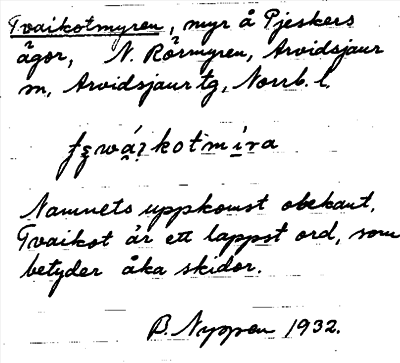 Tvaikotmyren, myr å Pjeskers
ägor, N. Rörmyren, Arvidsjaur
sn, Arvidsjaur tg, Norrb. l.
Namnets uppkomst obekant.
Tvaikot är ett lappst ord, som
betyder åka skidor.
B. Nyman 1932.